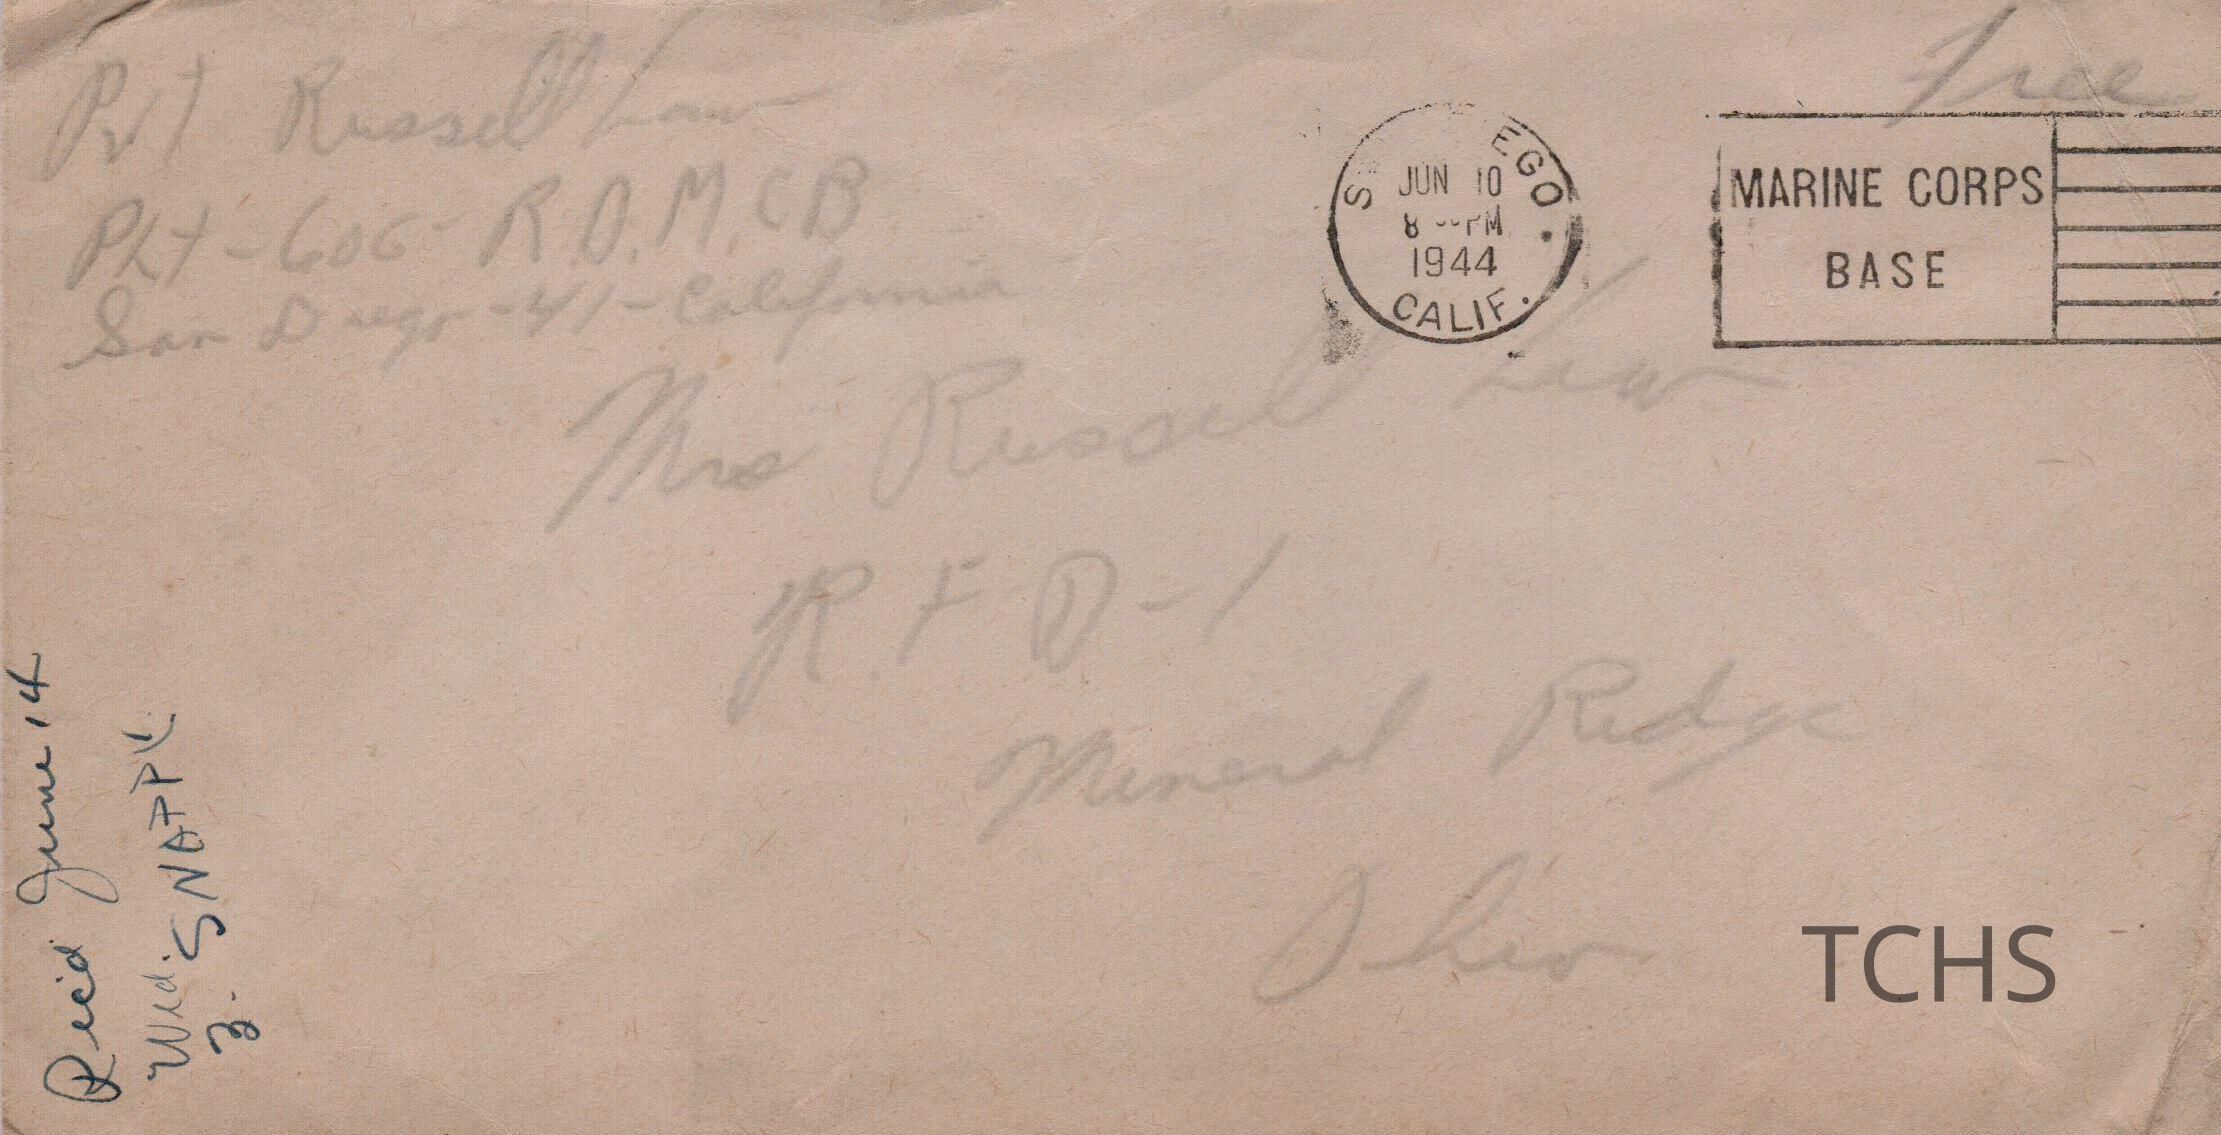 Pvt Russell Law
Plt - 606 - R.D.M.C.B
San Diego - 41 - California
Free
S EGO.
JUN 10
8 PM
1944
CALIF.
MARINE CORPS
BASE
Mrs Russell Law
R.F.D-1
Mineral Ridge
Ohio
Rec'd June 14
Wed.
3.
TCHS